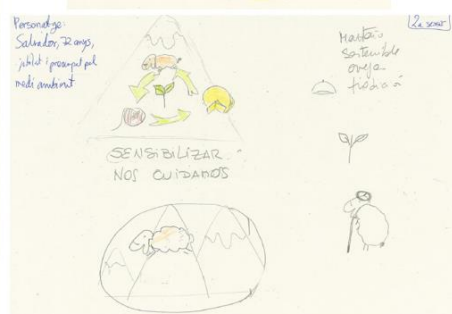 Personatge:
Salvador, 72 anys,
jubilat i preocupat pel
medi ambient
2a sessió
sostenible
oveja
SENSIBILIZAR
NOS CUIDAMOS